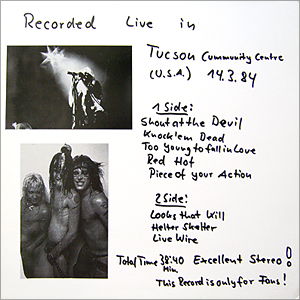 Recorded Live in
Tucson Cummunity Centre
(U.S.A.) 14.3.84
1 Side:
Shout at the Devil
Knock'em Dead
Too young to fall in Love
Red Hot
Piece of your Action
2 Side:
Looks that Kill
Helter Skelter
Live Wire
Total Time 38:40 Min Excellent Stereo!
This Record is only for Fans!